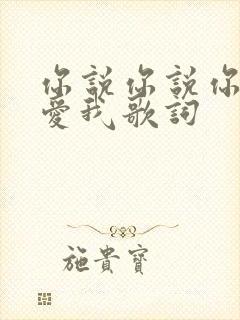 你說你說你
愛我歌詞
施貴寶